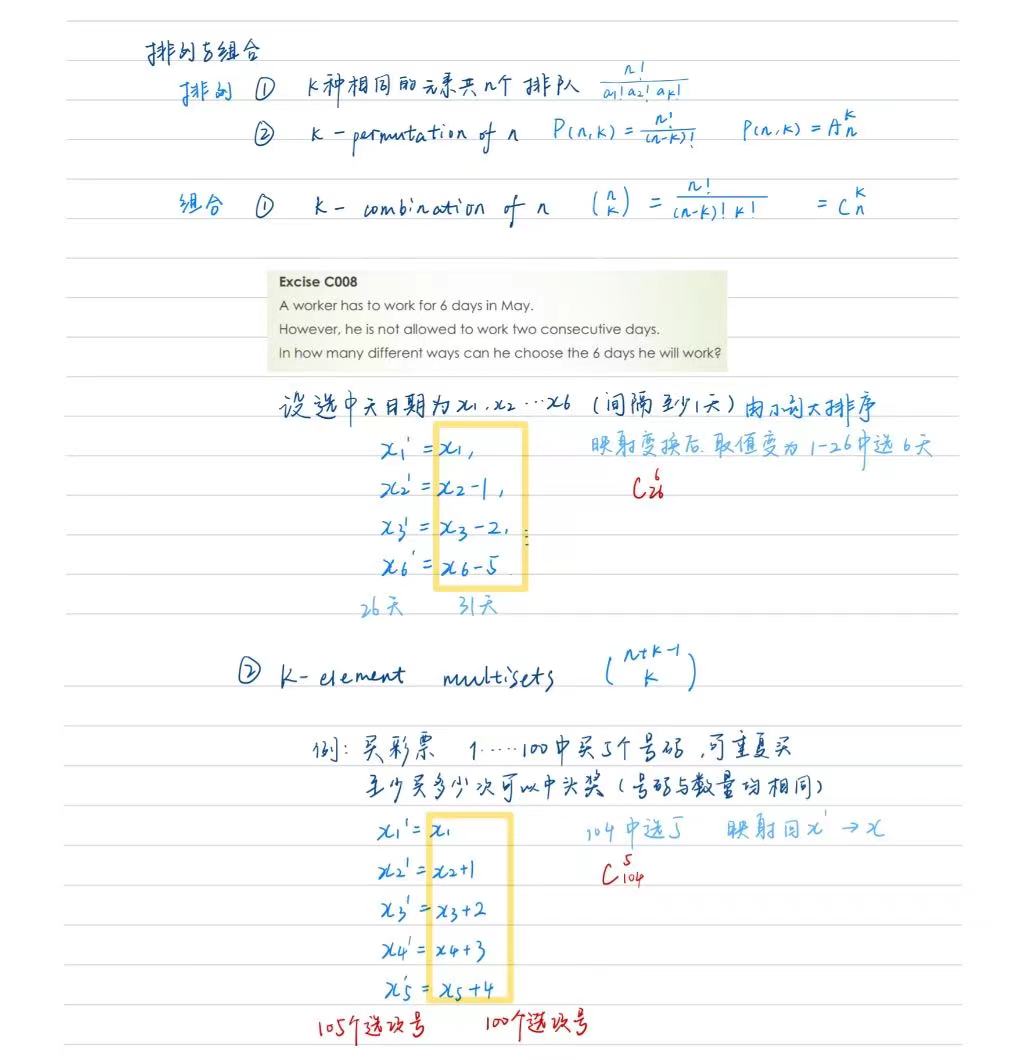 排列与组合
排列 ① K种相同的元素共n个排队 n!/a1!a2!ak!
② K-permutation of n P(n,k)=n!/(n-k)! P(n,k)=A_n^k
组合 ① K-combination of n (n k)=n!/(n-k)!k! =C_n^k
Excise C008
A worker has to work for 6 days in May.
However, he is not allowed to work two consecutive days.
In how many different ways can he choose the 6 days he will work?
设选中天日期为x1,x2…x6（间隔至少1天）由小到大排序
x1'=x1, 映射变换后.取值变为1-26中选6天
x2'=x2-1, C_26^6
x3'=x3-2, ⋮
x6'=x6-5
26天 31天
② K-element multisets (n+k-1 k)
例：买彩票 1……100中买5个号码,可重复买
至少买多少次可以中头奖（号码与数量均相同）
x1'=x1 104中选5 映射回x'→x
x2'=x2+1 C_104^5
x3'=x3+2
x4'=x4+3
x5'=x5+4
105个选项号 100个选项号